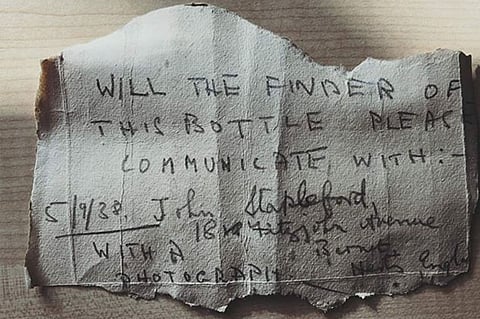 WILL THE FINDER OF
THIS BOTTLE PLEASE
COMMUNICATE WITH:-
5/9/38. John Stapleford,
18 Fitzjohn Avenue
Barnet
WITH A
PHOTOGRAPH